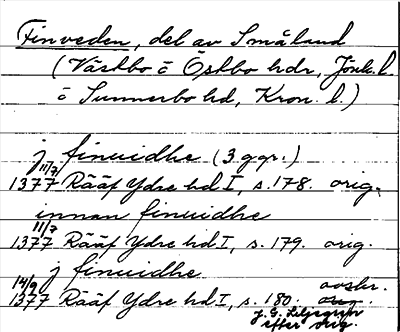 Finveden, del av Småland
(Västbo o Östbo hdr, Jönk. l.
o Sunnerbo hd, Kron. l.)
j finuidhe (3 ggr.)
11/7
1377 Rääf Ydre hd I, s. 178. orig.
innan finuidhe
11/7
1377 Rääf Ydre hd I, s. 179. orig.
j finuidhe
14/9 avskr.
1377 Rääf Ydre hd I, s. 180. orig.
j. G. Liljegren
efter orig.